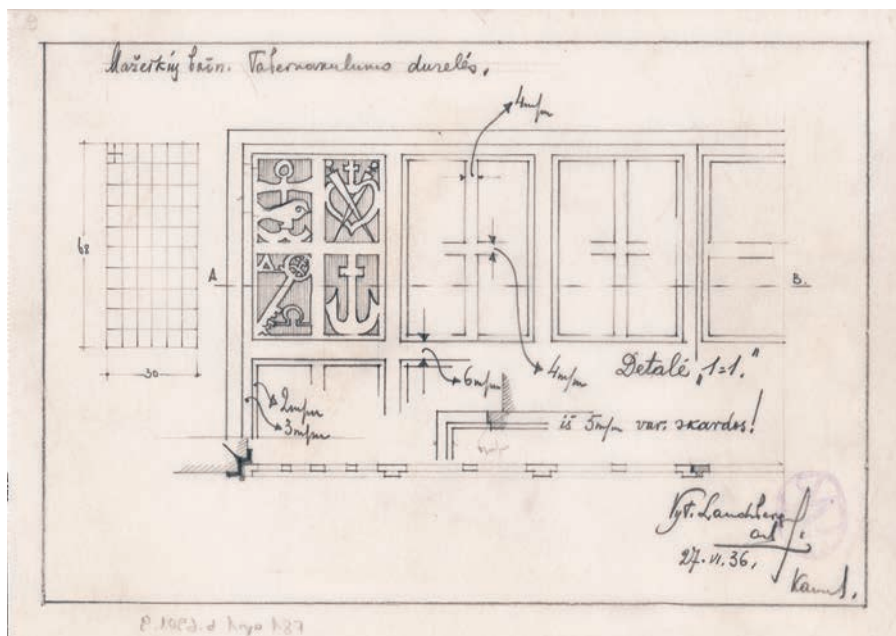 Mažeikių bažn. Tabernakulumo durelės.
4m/m
68
A.
B.
30
6m/m
4m/m
Detalė "1=1."
2m/m
3m/m
iš 5m/m var. skardos!
Vyt. Landsberg
27.VI.36.